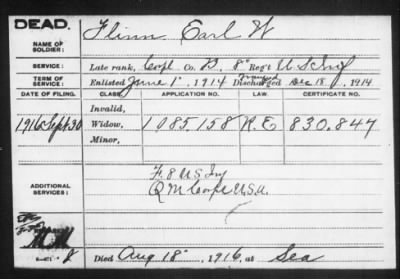 DEAD.
NAME OF SOLDIER: Flinn Earl W
SERVICE: Late rank, Corpl Co. B, 8" Reg't U S Inf
TERM OF SERVICE: Enlisted June 1", 1914 Discharged Dec 18, 1914
DATE OF FILING. CLASS. APPLICATION NO. LAW. CERTIFICATE NO.
Invalid,
1916 Sept 30 Widow, 1085.158 R.E 830.847
Minor,
ADDITIONAL SERVICES: F. 8 U S Inf
Q M Corps U.S.A.
Died Aug 18", 1916, at Sea